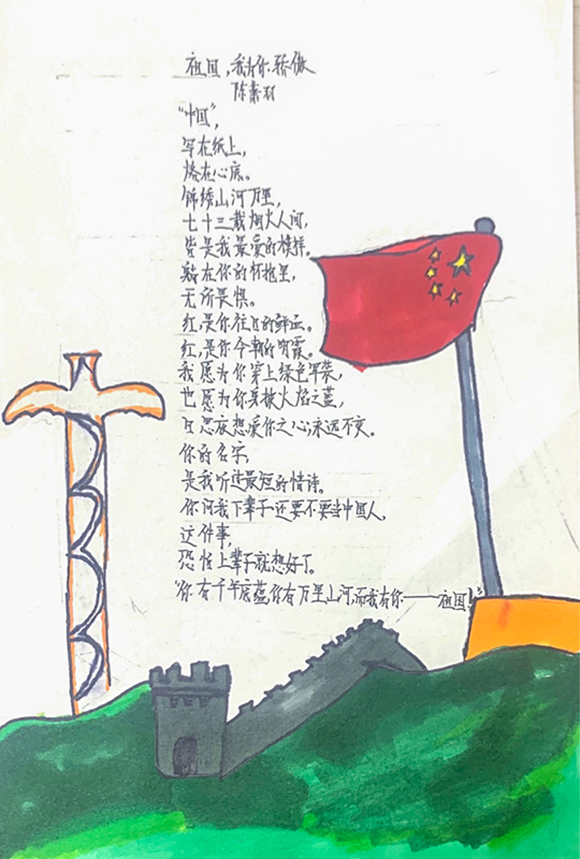 祖国，我有你骄傲
陈素羽
“中国”，
写在纸上，
烙在心底。
锦绣山河万里，
七十三载烟火人间，
皆是我最爱的模样。
躺在你的怀抱里，
无所畏惧。
红，是你往日的鲜血。
红，是你今朝的明霞。
我愿为你穿上绿色军装，
也愿为你身披火焰之蓝，
日思夜想爱你之心，永远不变。
你的名字，
是我听过最短的情诗。
你问我下辈子还要不要当中国人，
这件事，
恐怕上辈子就想好了。
“你有千年底蕴你有万里山河而我有你——祖国！”